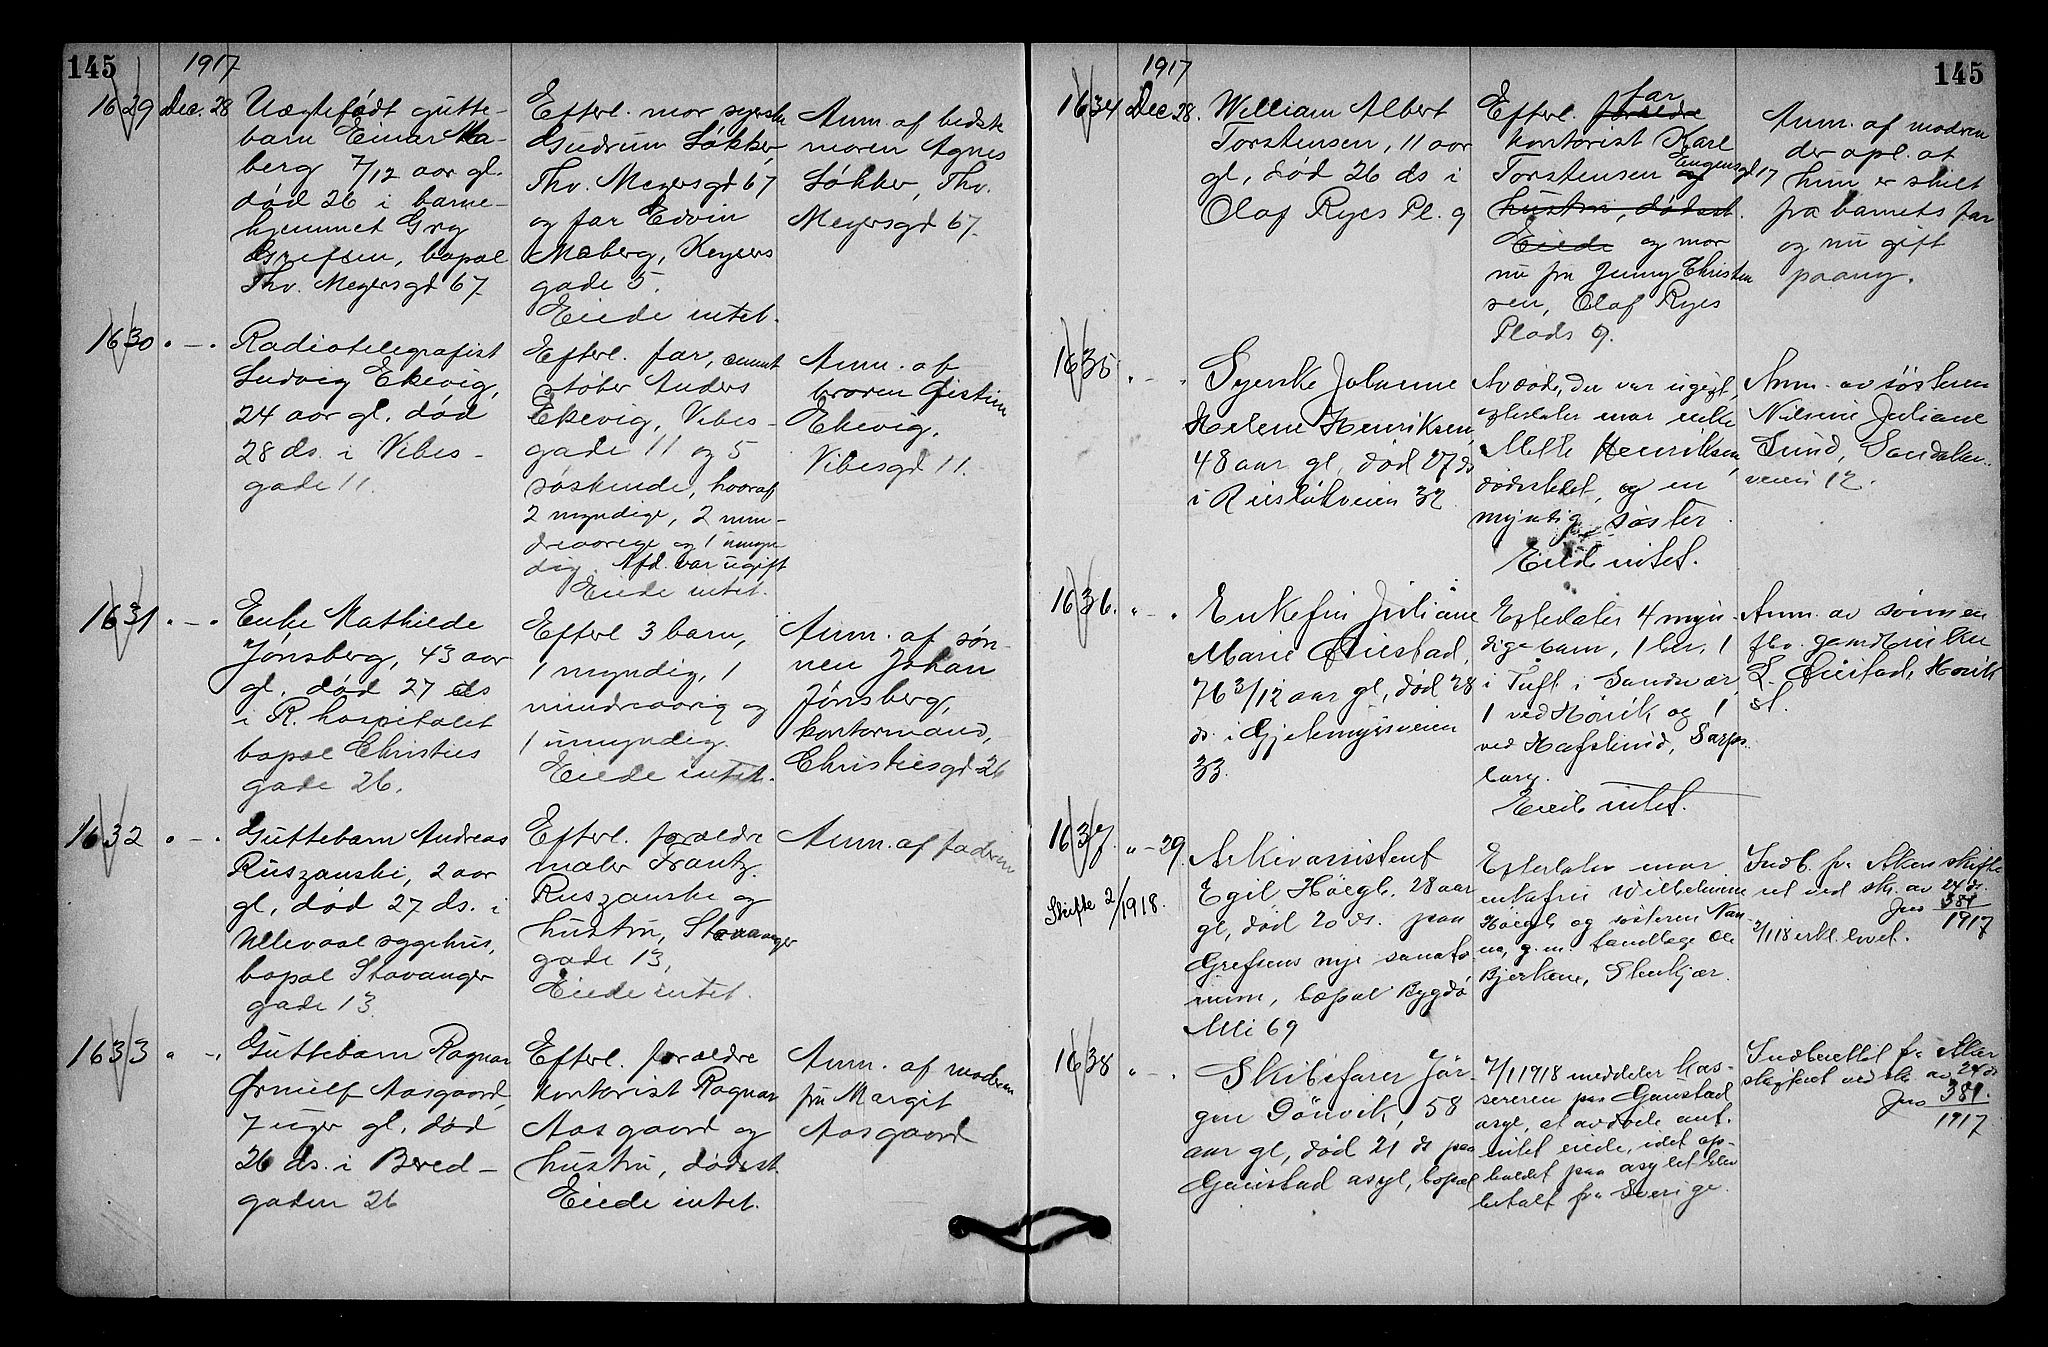 145
1917
1629 Dec. 28
Uægtefødt gutte-
barn Einar Ma-
berg 7/12 aar gl.
død 26 i barne-
hjemmet Gry
Grefsen, bopæl
Thv. Meyersgd 67
Efterl. mor syerske
Gudrun Løkker,
Thv. Meyersgd 67
og far Edvin
Maberg, Keysers
gade 5.
Eiede intet.
Anm. af bedste
moren Agnes
Løkker, Thv.
Meyersgd 67
1630 " — "
Radiotelegrafist
Ludvig Ekevig,
24 aar gl. død
28 ds. i Vibes-
gade 11.
Efterl. far, cement
støber Anders
Ekevig, Vibes-
gade 11 og 5
søskende, hvoraf
2 myndige, 2 min-
dreaarige og 1 umyn-
dig. Afd. var ugift
Eiede intet.
Anm. af
broren Øistein
Ekevig,
Vibesgd 11.
1631 " — "
Enke Mathilde
Jønsberg, 43 aar
gl. død 27 ds
i R. hospitalet
bopæl Christies
gade 26.
Efterl 3 barn,
1 myndig, 1
mindreaarig og
1 umyndig.
Eiede intet.
Anm. af søn-
nen Johan
Jønsberg,
kontormand,
Christiesgd 26
1632 " — "
Guttebarn Andreas
Ruszanski, 2 aar
gl, død 27 ds. i
Ullevaal sygehus,
bopæl Stavanger
gade 13
Efterl. forældre
maler Frantz
Ruszanske og
hustru, Stavanger
gade 13,
Eiede intet.
Anm. af faderen
1633 " — "
Guttebarn Ragnar
Ørnulf Aasgaard,
7 uger gl, død
26 ds. i Bred-
gaden 26
Efterl. forældre
kontorist Ragnar
Aasgaard og
hustru, dødsst.
Eiede intet.
Anm. af moderen
fru Margit
Aasgaard
145
1917
1634 Dec 28.
William Albert
Torstensen, 11 aar
gl, død 26 ds i
Olaf Ryes Pl. 9
far
Efterl. forældre
kontorist Karl
Torstensen og Eugensgd 17
hustru, dødsst.
Eiede og mor
nu fru Jenny Christen
sen, Olaf Ryes
Plads 9.
Anm. af moderen
der opl. at
hun er skilt
fra barnets far
og nu gift
paany.
1635 " — "
Syerske Johanne
Helene Henriksen,
48 aar gl, død 27 ds
i Ruseløkveien 32
Avdøde, der var ugift,
efterlater mor enke
Mette Henriksen,
dødsstedet, og en
myndig søster
Eiede intet.
Anm. av søsteren
Nilsine Juliane
Lund, Sandaker-
veien 12.
1636. " — "
Enkefru Juliane
Marie Øiestad,
76 3/12 aar gl, død 28
ds. i Gjetemyrsveien
33.
Efterlater 4 myn-
dige barn, 1 her, 1
i Tuft i Sandsvær,
1 ved Hønik og 1
ved Hafslund, Sarps
borg.
Eiede intet.
Anm. av sønnen
fhv. gaardbruker
L. Øiestad, Hønik
st.
1637. " — 29.
Skifte 2/1918.
Arkivassistent
Egil Høegh, 28 aar
gl, død 20 ds. paa
Grefsens nye sanato-
rium, bopæl Bygdø
Alle 69
Efterlater mor
enkefru Wilhelmine
Høegh og søsteren Nan-
na, g. m. tandlæge Ole
Bjerkene, Stenkjær.
Indb. fra Akers skifte
ret ved sk. av 24 ds.
Jno 381/1917
2/1 18 erkl. lovet.
1638 " — "
Skibsfører Jør-
gen Dønvik, 58
aar gl, død 21 ds paa
Gaustad asyl, bopæl
7/1 1918 meddeler kas-
sereren paa Gaustad
asyl, at avdøde ant.
intet eiede, idet op-
holdet paa asylet blev
betalt fra Sverige.
Indberettet fra Aker
skifteret ved sk. av 24 ds
Jno 381./1917